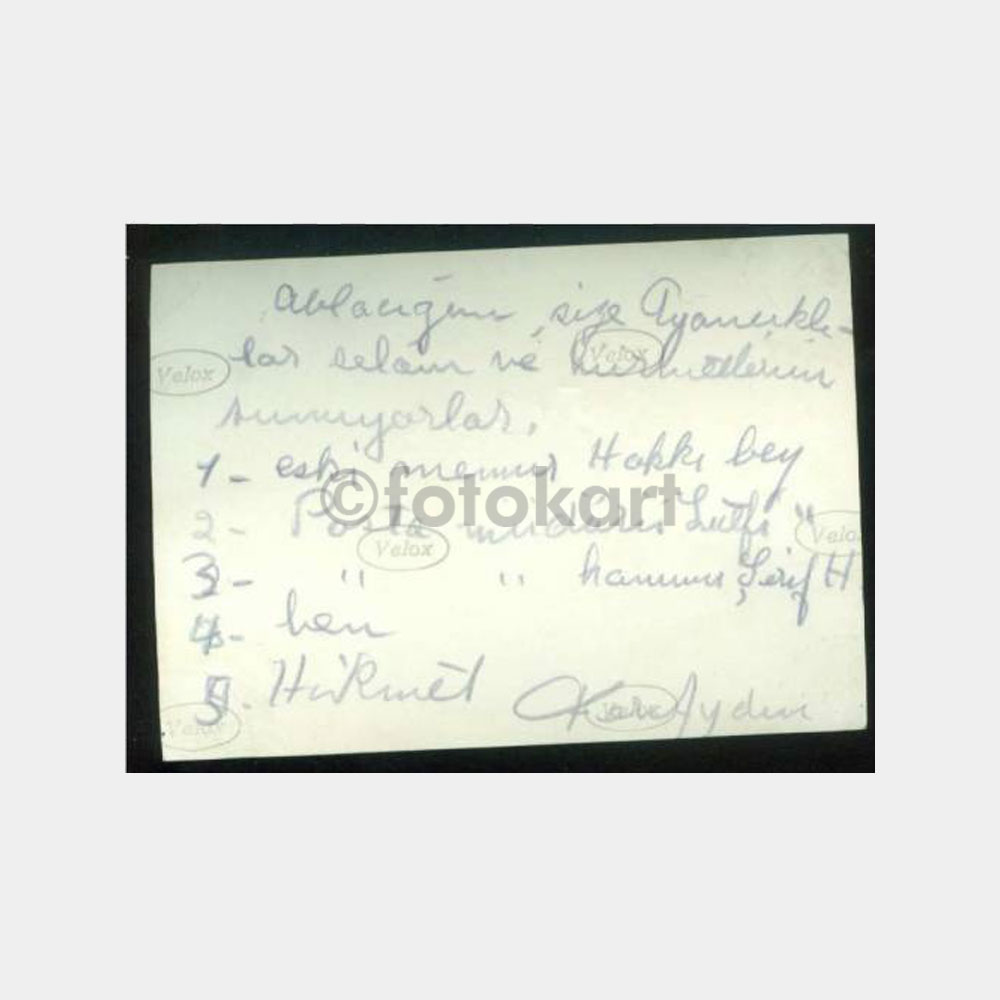 Ablacığım, size Ayancıklı-
lar selâm ve hürmetlerini
sunuyorlar.
1- eski memur Hakkı bey
2- Posta müdürü Lütfi "
3- " " hanımı Şerif H
4- ben
5. Hikmet
Aydın
Velox
Velox
Velox
Velox
Velox
©fotokart